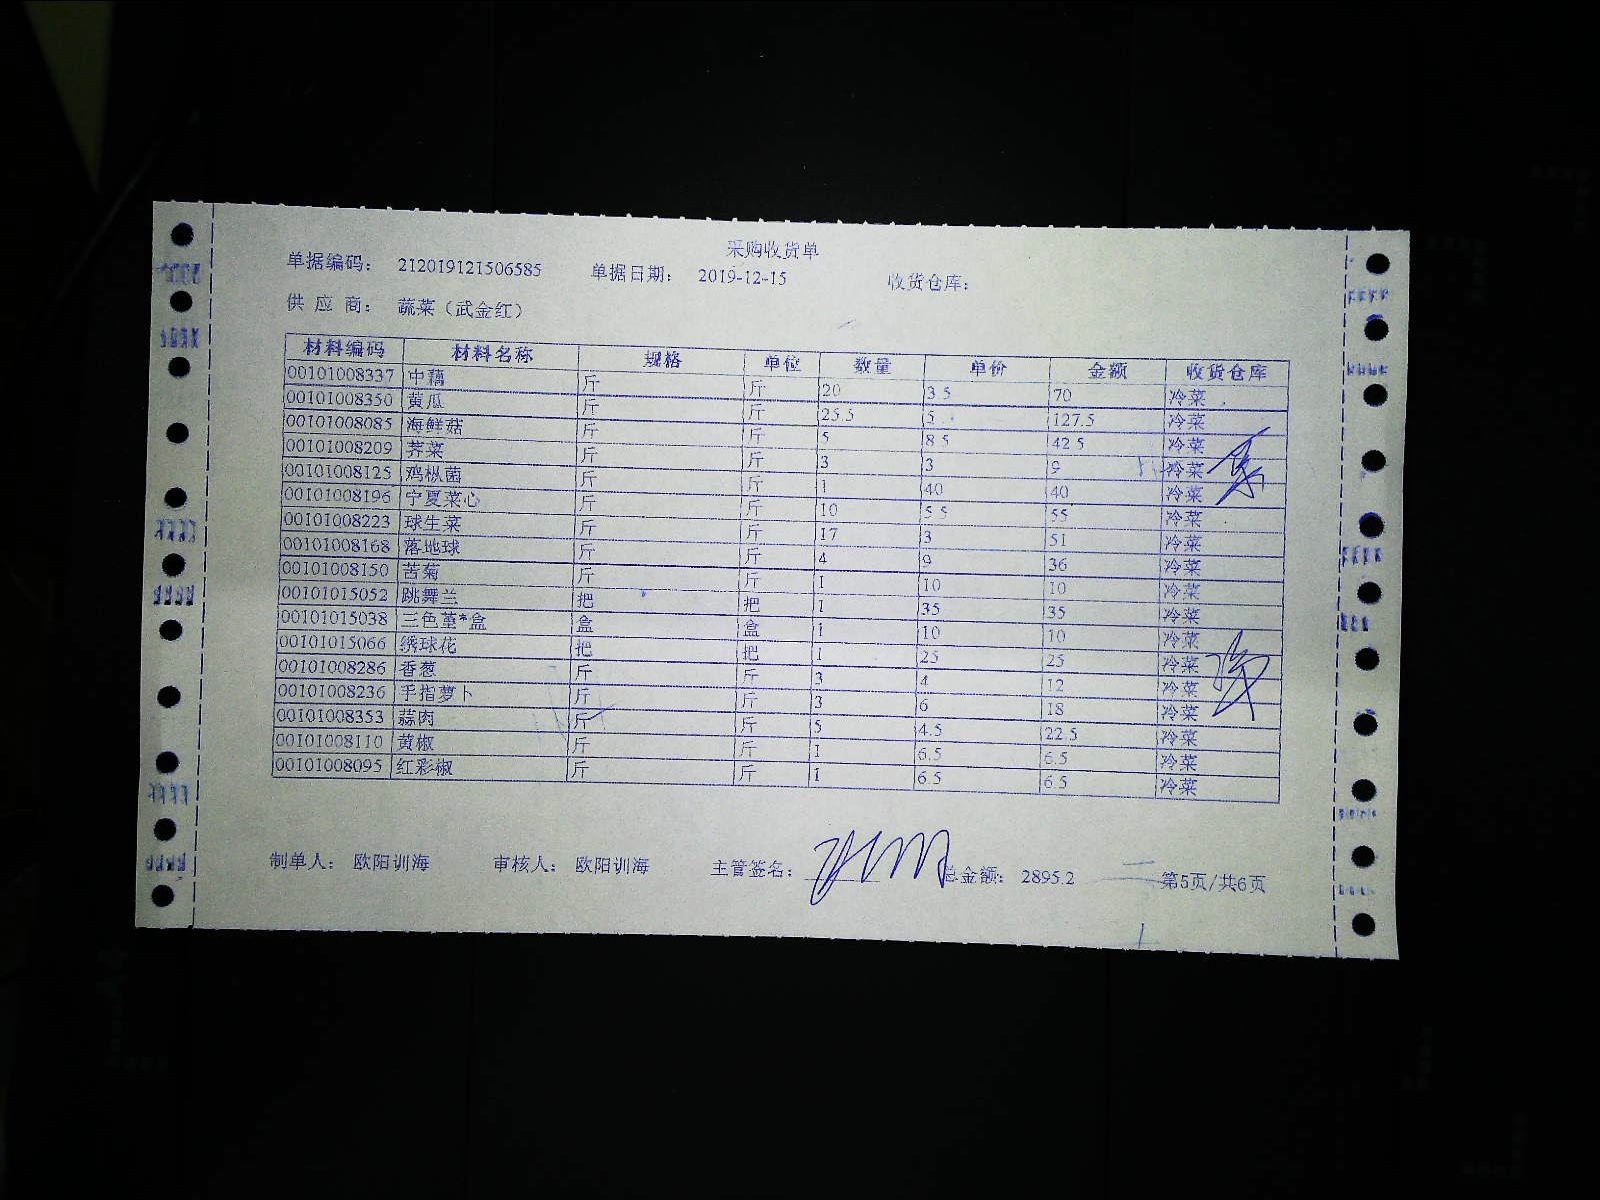 采购收货单
单据编码： 212019121506585 单据日期： 2019-12-15 收货仓库：
供 应 商： 蔬菜（武金红）
材料编码 材料名称 规格 单位 数量 单价 金额 收货仓库
00101008337 中藕 斤 斤 20 3.5 70 冷菜
00101008350 黄瓜 斤 斤 25.5 5 127.5 冷菜
00101008085 海鲜菇 斤 斤 5 8.5 42.5 冷菜
00101008209 荠菜 斤 斤 3 3 9 冷菜
00101008125 鸡枞菌 斤 斤 1 40 40 冷菜
00101008196 宁夏菜心 斤 斤 10 5.5 55 冷菜
00101008223 球生菜 斤 斤 17 3 51 冷菜
00101008168 落地球 斤 斤 4 9 36 冷菜
00101008150 苦菊 斤 斤 1 10 10 冷菜
00101015052 跳舞兰 把 把 1 35 35 冷菜
00101015038 三色堇*盒 盒 盒 1 10 10 冷菜
00101015066 绣球花 把 把 1 25 25 冷菜
00101008286 香葱 斤 斤 3 4 12 冷菜
00101008236 手指萝卜 斤 斤 3 6 18 冷菜
00101008353 蒜肉 斤 斤 5 4.5 22.5 冷菜
00101008110 黄椒 斤 斤 1 6.5 6.5 冷菜
00101008095 红彩椒 斤 斤 1 6.5 6.5 冷菜
制单人： 欧阳训海 审核人： 欧阳训海 主管签名： 总金额： 2895.2 第5页/共6页